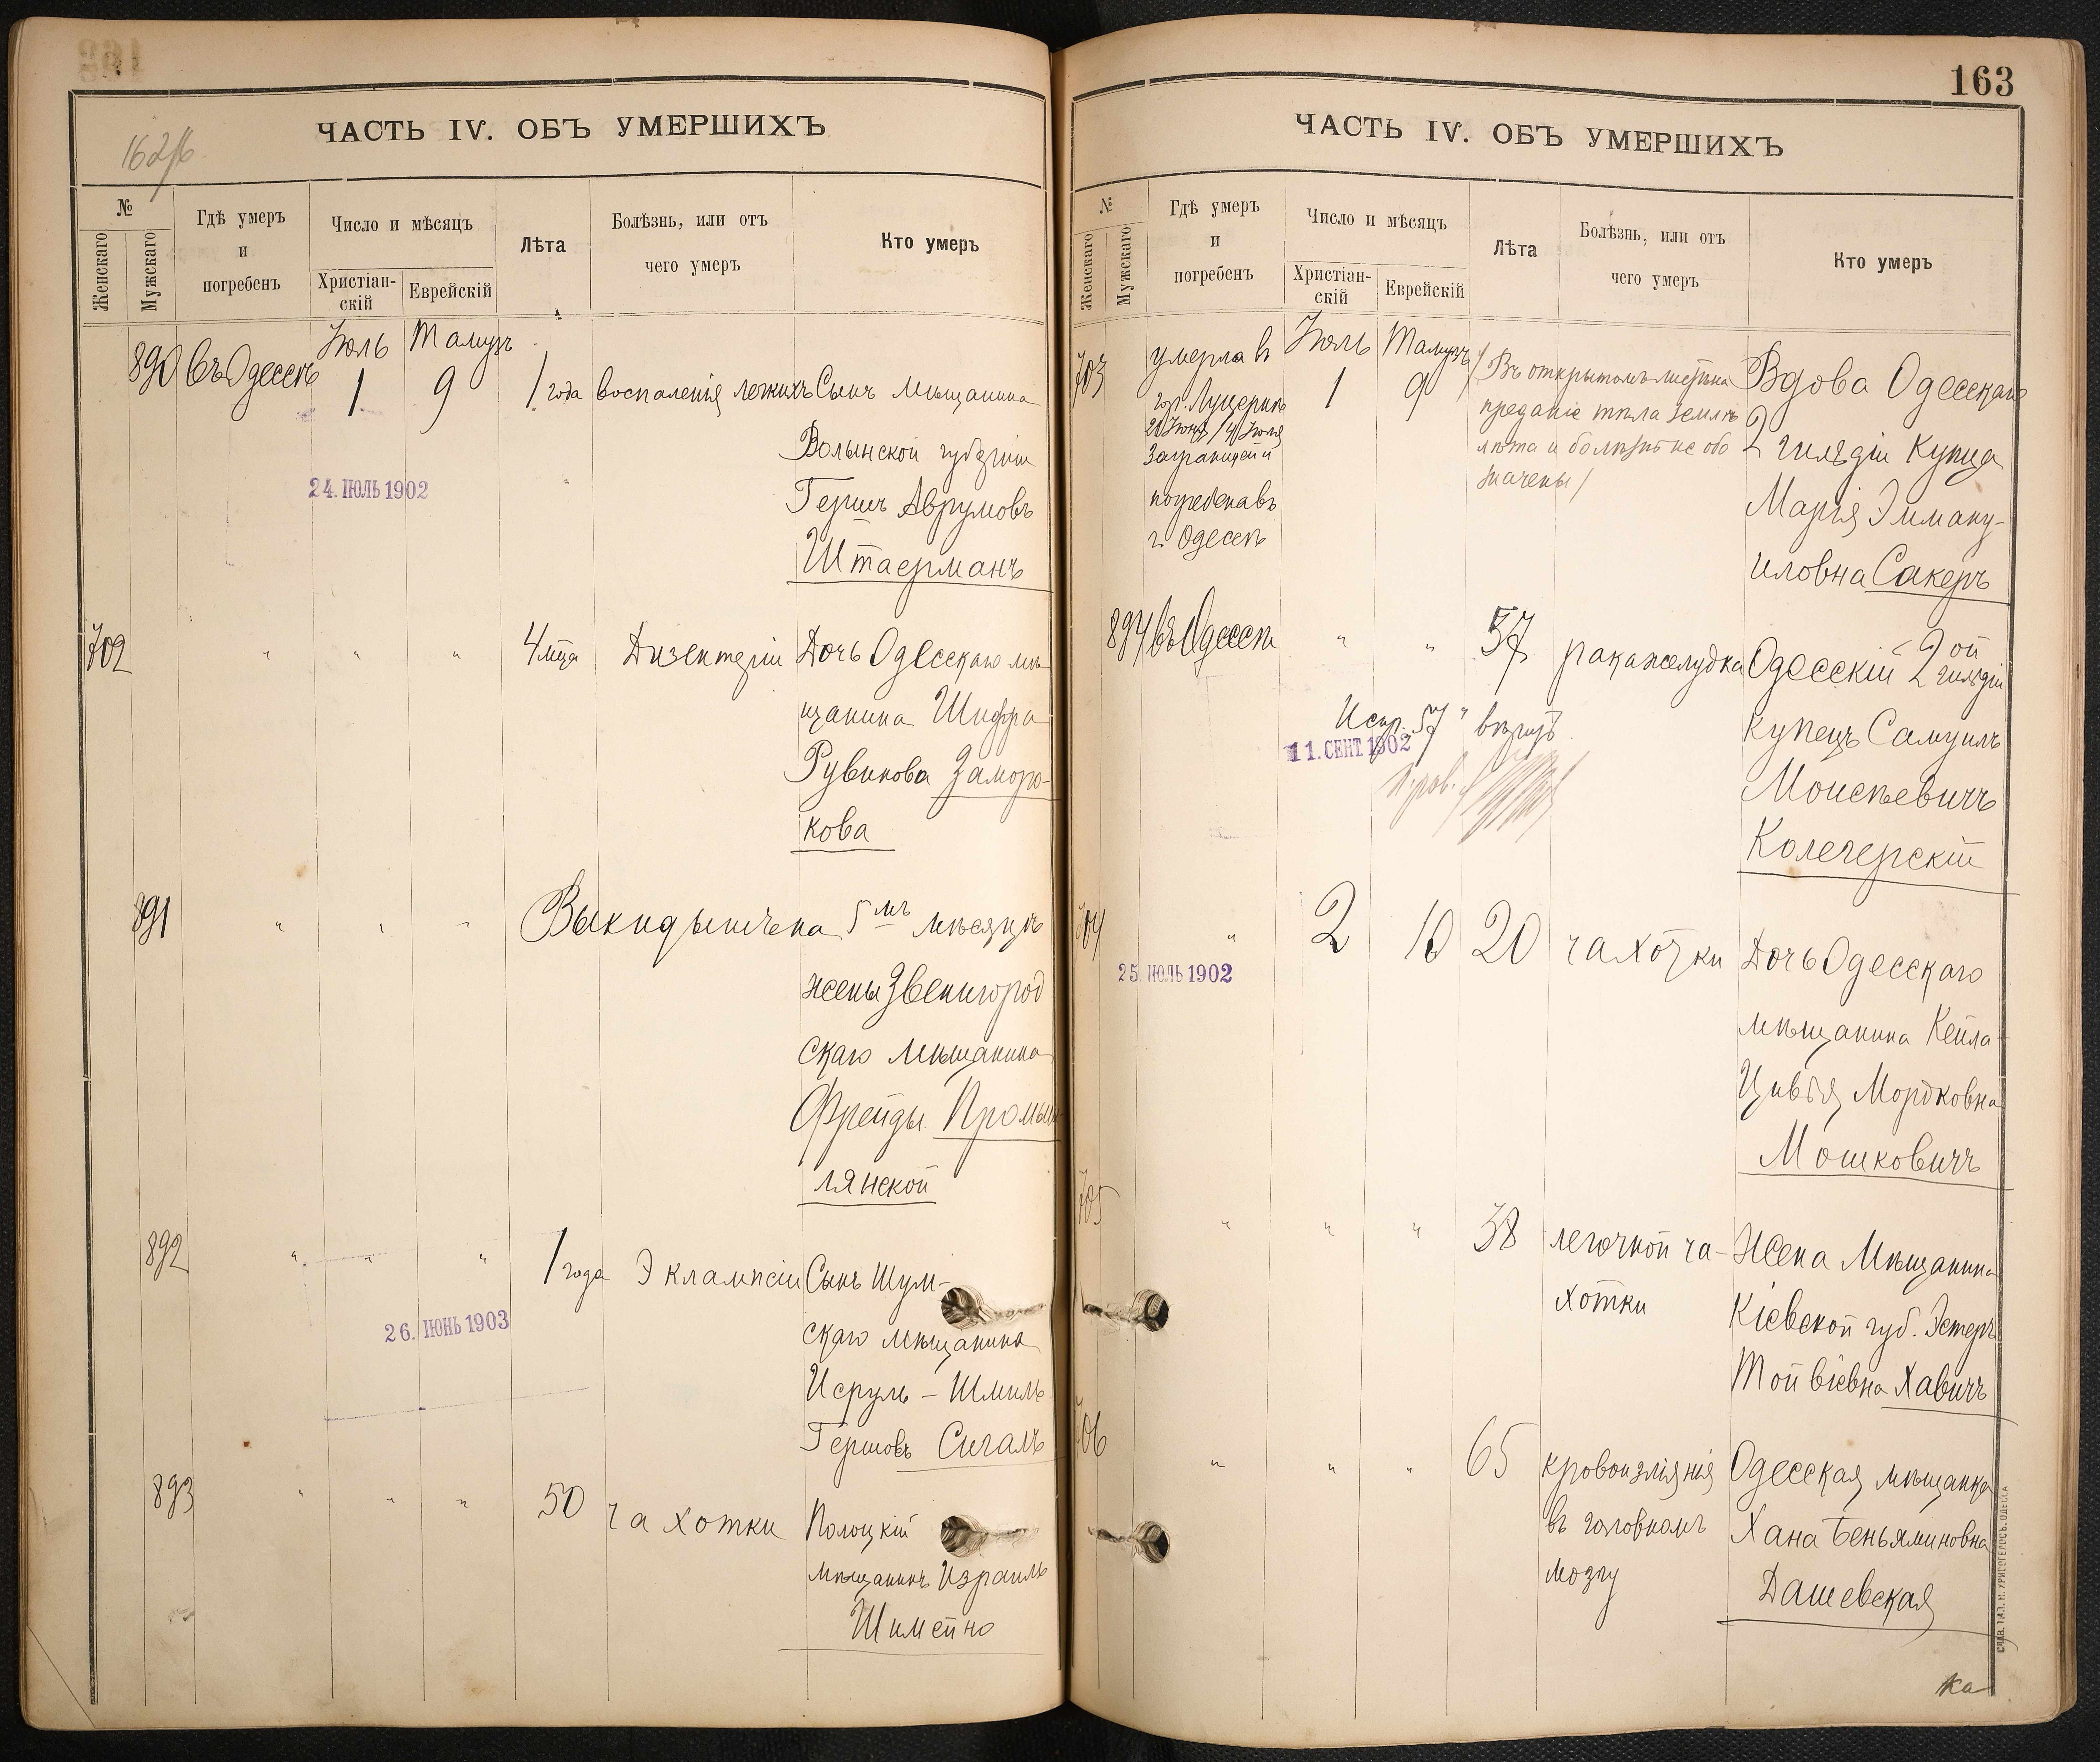 162/б
ЧАСТЬ IV. ОБЪ УМЕРШИХЪ
№
Женскаго
Мужскаго
Гдѣ умеръ
и
погребенъ
Число и мѣсяцъ
Христіан-
скій
Еврейскій
Лѣта
Болѣзнь, или отъ
чего умеръ
Кто умеръ
Іюль Тамузъ
890 въ Одессѣ 1 9 1 года воспаленія легкихъ Сынъ мѣщанина
Волынской губерніи
24. ІЮЛЬ 1902
Гершъ Аврумовъ
Штаерманъ
702 " " " 4 мца Дизентеріи Дочь Одесскаго мѣ
щанина Шифра
Рувинова Заморо-
кова
891 " " " Выкидышъ на 5 мъ мѣсяцѣ
жены Звенигород
скаго мѣщанина
Фрейды Промыш
лянской
892 " " " 1 года Эклампсіи Сынъ Шум-
26. ІЮНЬ 1903
скаго мѣщанина
Исруль - Шмиль
Гершовъ Сигалъ
893 " " " 50 чахотки Полоцкій
мѣщанинъ Израиль
Шимейно
163
ЧАСТЬ IV. ОБЪ УМЕРШИХЪ
№
Женскаго
Мужскаго
Гдѣ умеръ
и
погребенъ
Число и мѣсяцъ
Христіан-
скій
Еврейскій
Лѣта
Болѣзнь, или отъ
чего умеръ
Кто умеръ
Іюль Тамузъ
703 умерла въ 1 9 /Въ открытомъ листѣ на Вдова Одесскаго
гор. Луцернѣ преданіе тѣла землѣ
21 Іюня / 4 Іюля лѣта и болѣзнь не обо 2 гильдіи купца
заграницей и значены/
погребена въ Марія Эмману-
г. Одессѣ
иловна Сакеръ
894 въ Одессѣ " " 57 рака желудка Одесскій 2 ой гильдіи
Испр. "57" вѣрить
11. СЕНТ. 1902
купецъ Самуилъ
Моисѣевичъ
Колечерскій
704 " 2 10 20 чахотки Дочь Одесскаго
25. ІЮЛЬ 1902
мѣщанина Кейла-
Цивья Мордковна
Мошковичъ
705 " " " 38 легочной ча- Жена мѣщанина
хотки Кіевской губ. Эстеръ
Тойвіевна Хавичъ
706 " " " 65 кровоизліянія Одесская мѣщанка
въ головномъ Хана Беньяминовна
мозгу Дашевская
ка